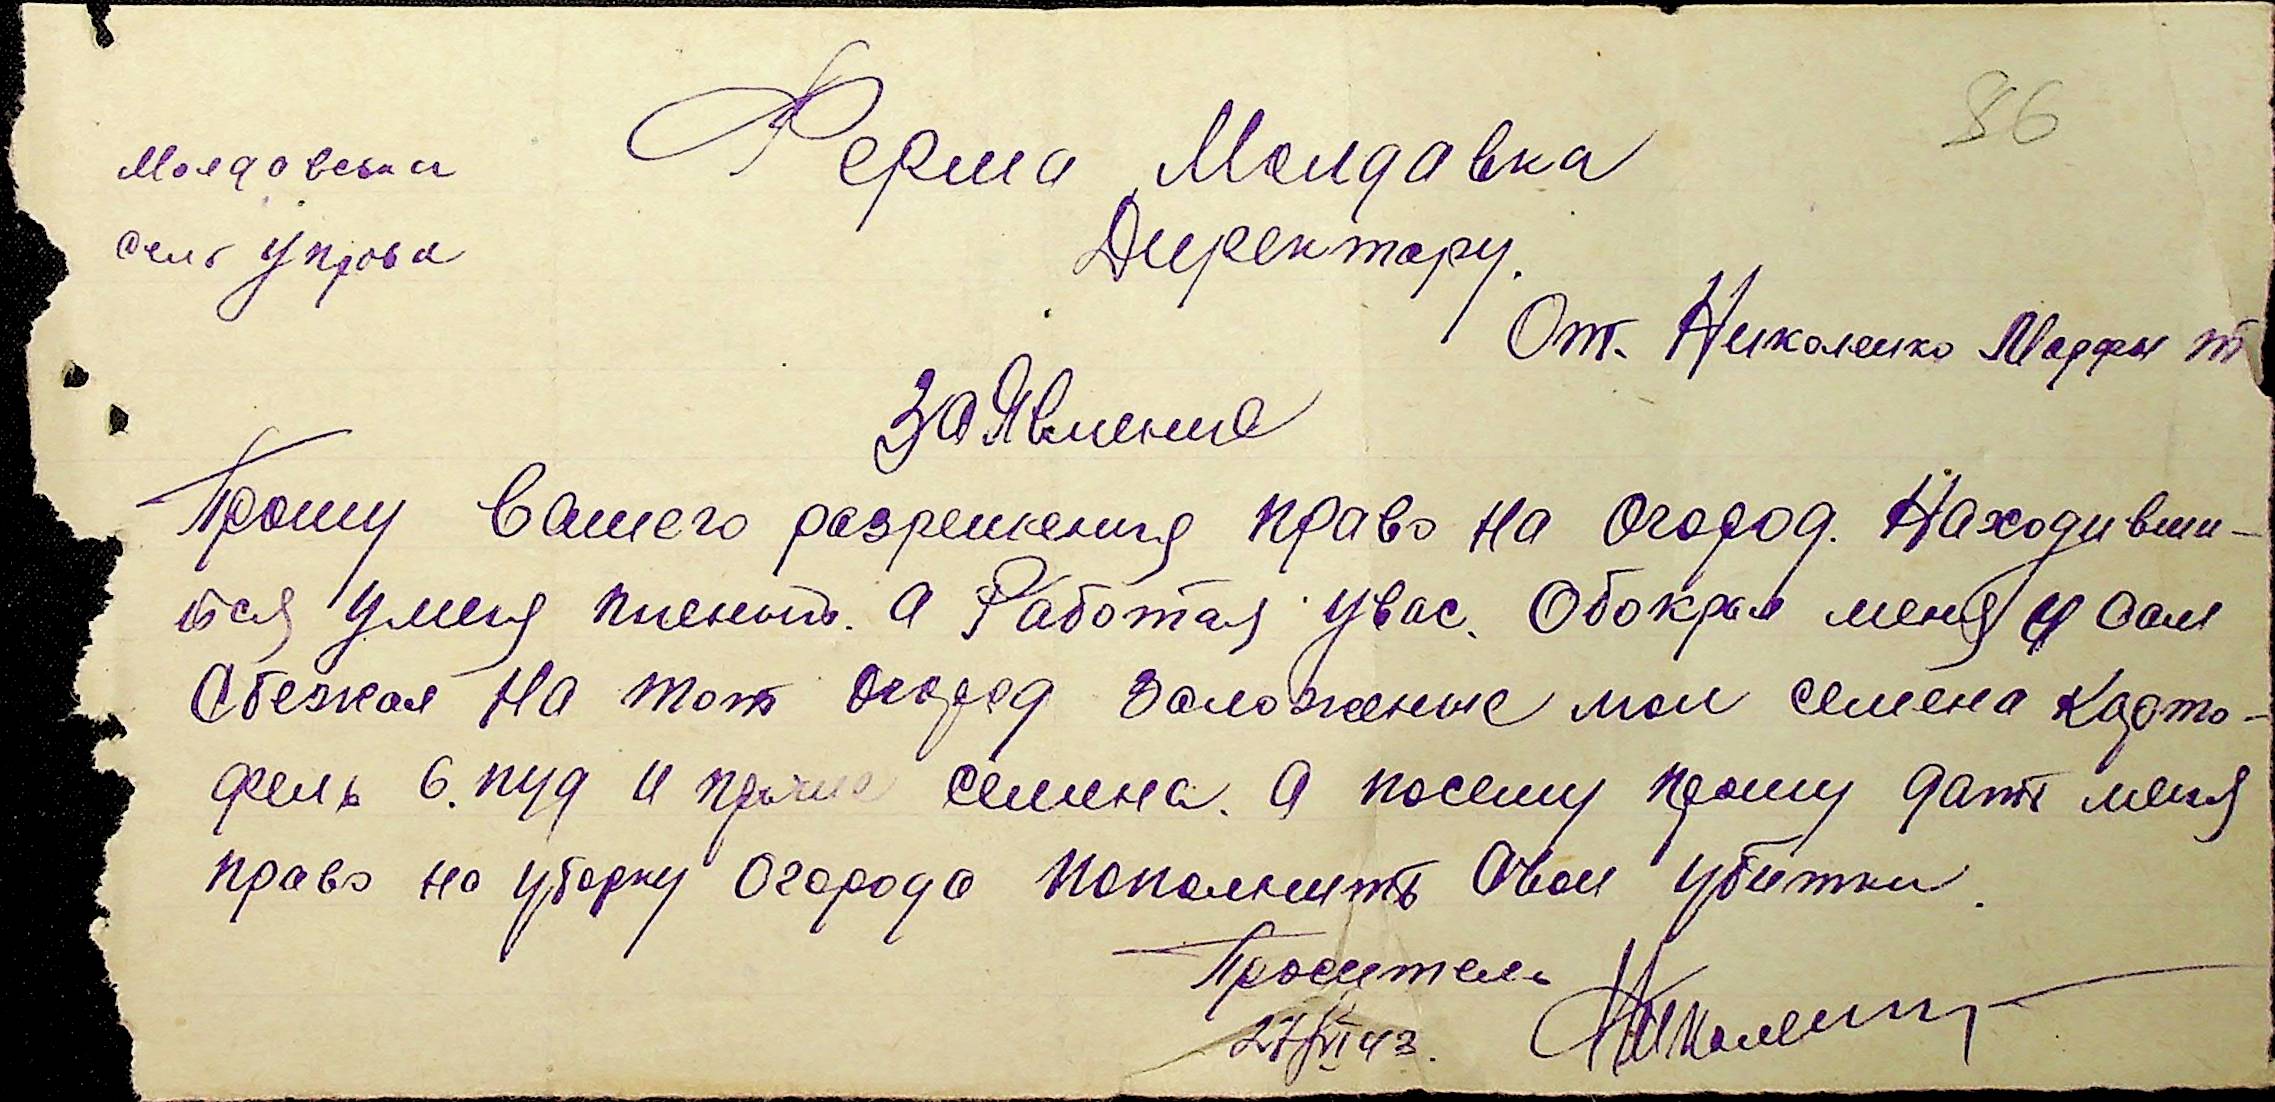 86
Ферма Молдавка
Молдавська
сель Управа
Директару.
От. Николенко Марфы Т
ЗаЯвление
Прошу Вашего разрешения право на Огород. Находивши-
йся у меня пленый. а Работая у вас. Обокрал меня и сам
Сбежал На тот Огород Заложеные мои семена Карто-
фель 6. пуд и прочие семена. а посему прошу дать меня
право на уборку Огорода пополнить Свои убитки.
Проситель
27/VI 43. Николенко